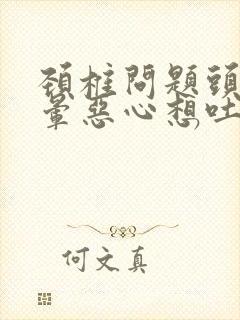 頚椎問題頭
暈惡心想吐
何文真